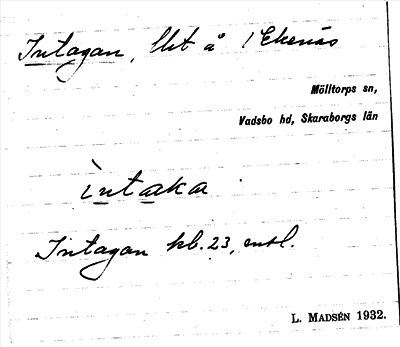 Intagan, lht å 1 Ekenäs
Mölltorps sn,
Vadsbo hd, Skaraborgs län
ìntaka
Intagan kb. 23, enstl.
L. MADSÉN 1932.